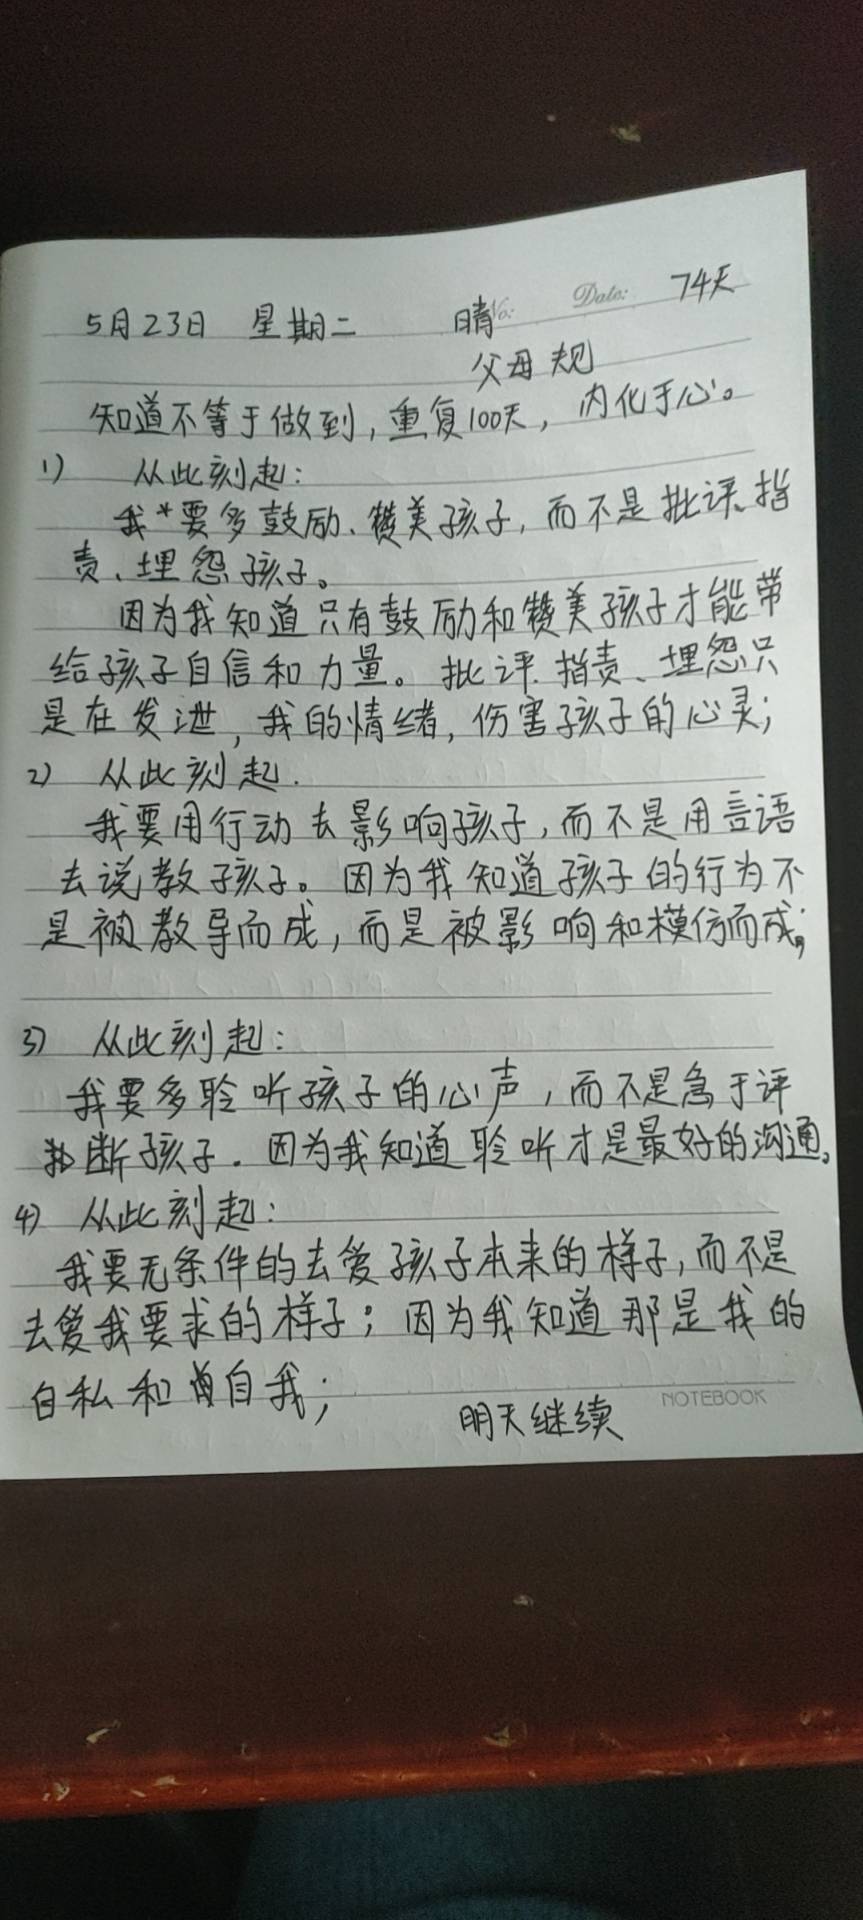 5月23日 星期二 晴 No: Date: 74天
父母规
知道不等于做到,重复100天,内化于心。
1) 从此刻起:
我*要多鼓励、赞美孩子,而不是批评、指
责、埋怨孩子。
因为我知道只有鼓励和赞美孩子才能带
给孩子自信和力量。批评、指责、埋怨只
是在发泄,我的情绪,伤害孩子的心灵;
2) 从此刻起.
我要用行动去影响孩子,而不是用言语
去说教孩子。因为我知道孩子的行为不
是被教导而成,而是被影响和模仿而成;
3) 从此刻起:
我要多聆听孩子的心声,而不是急于评
断孩子.因为我知道聆听才是最好的沟通。
4) 从此刻起:
我要无条件的去爱孩子本来的样子,而不是
去爱我要求的样子;因为我知道那是我的
自私和自我;
明天继续
NOTEBOOK